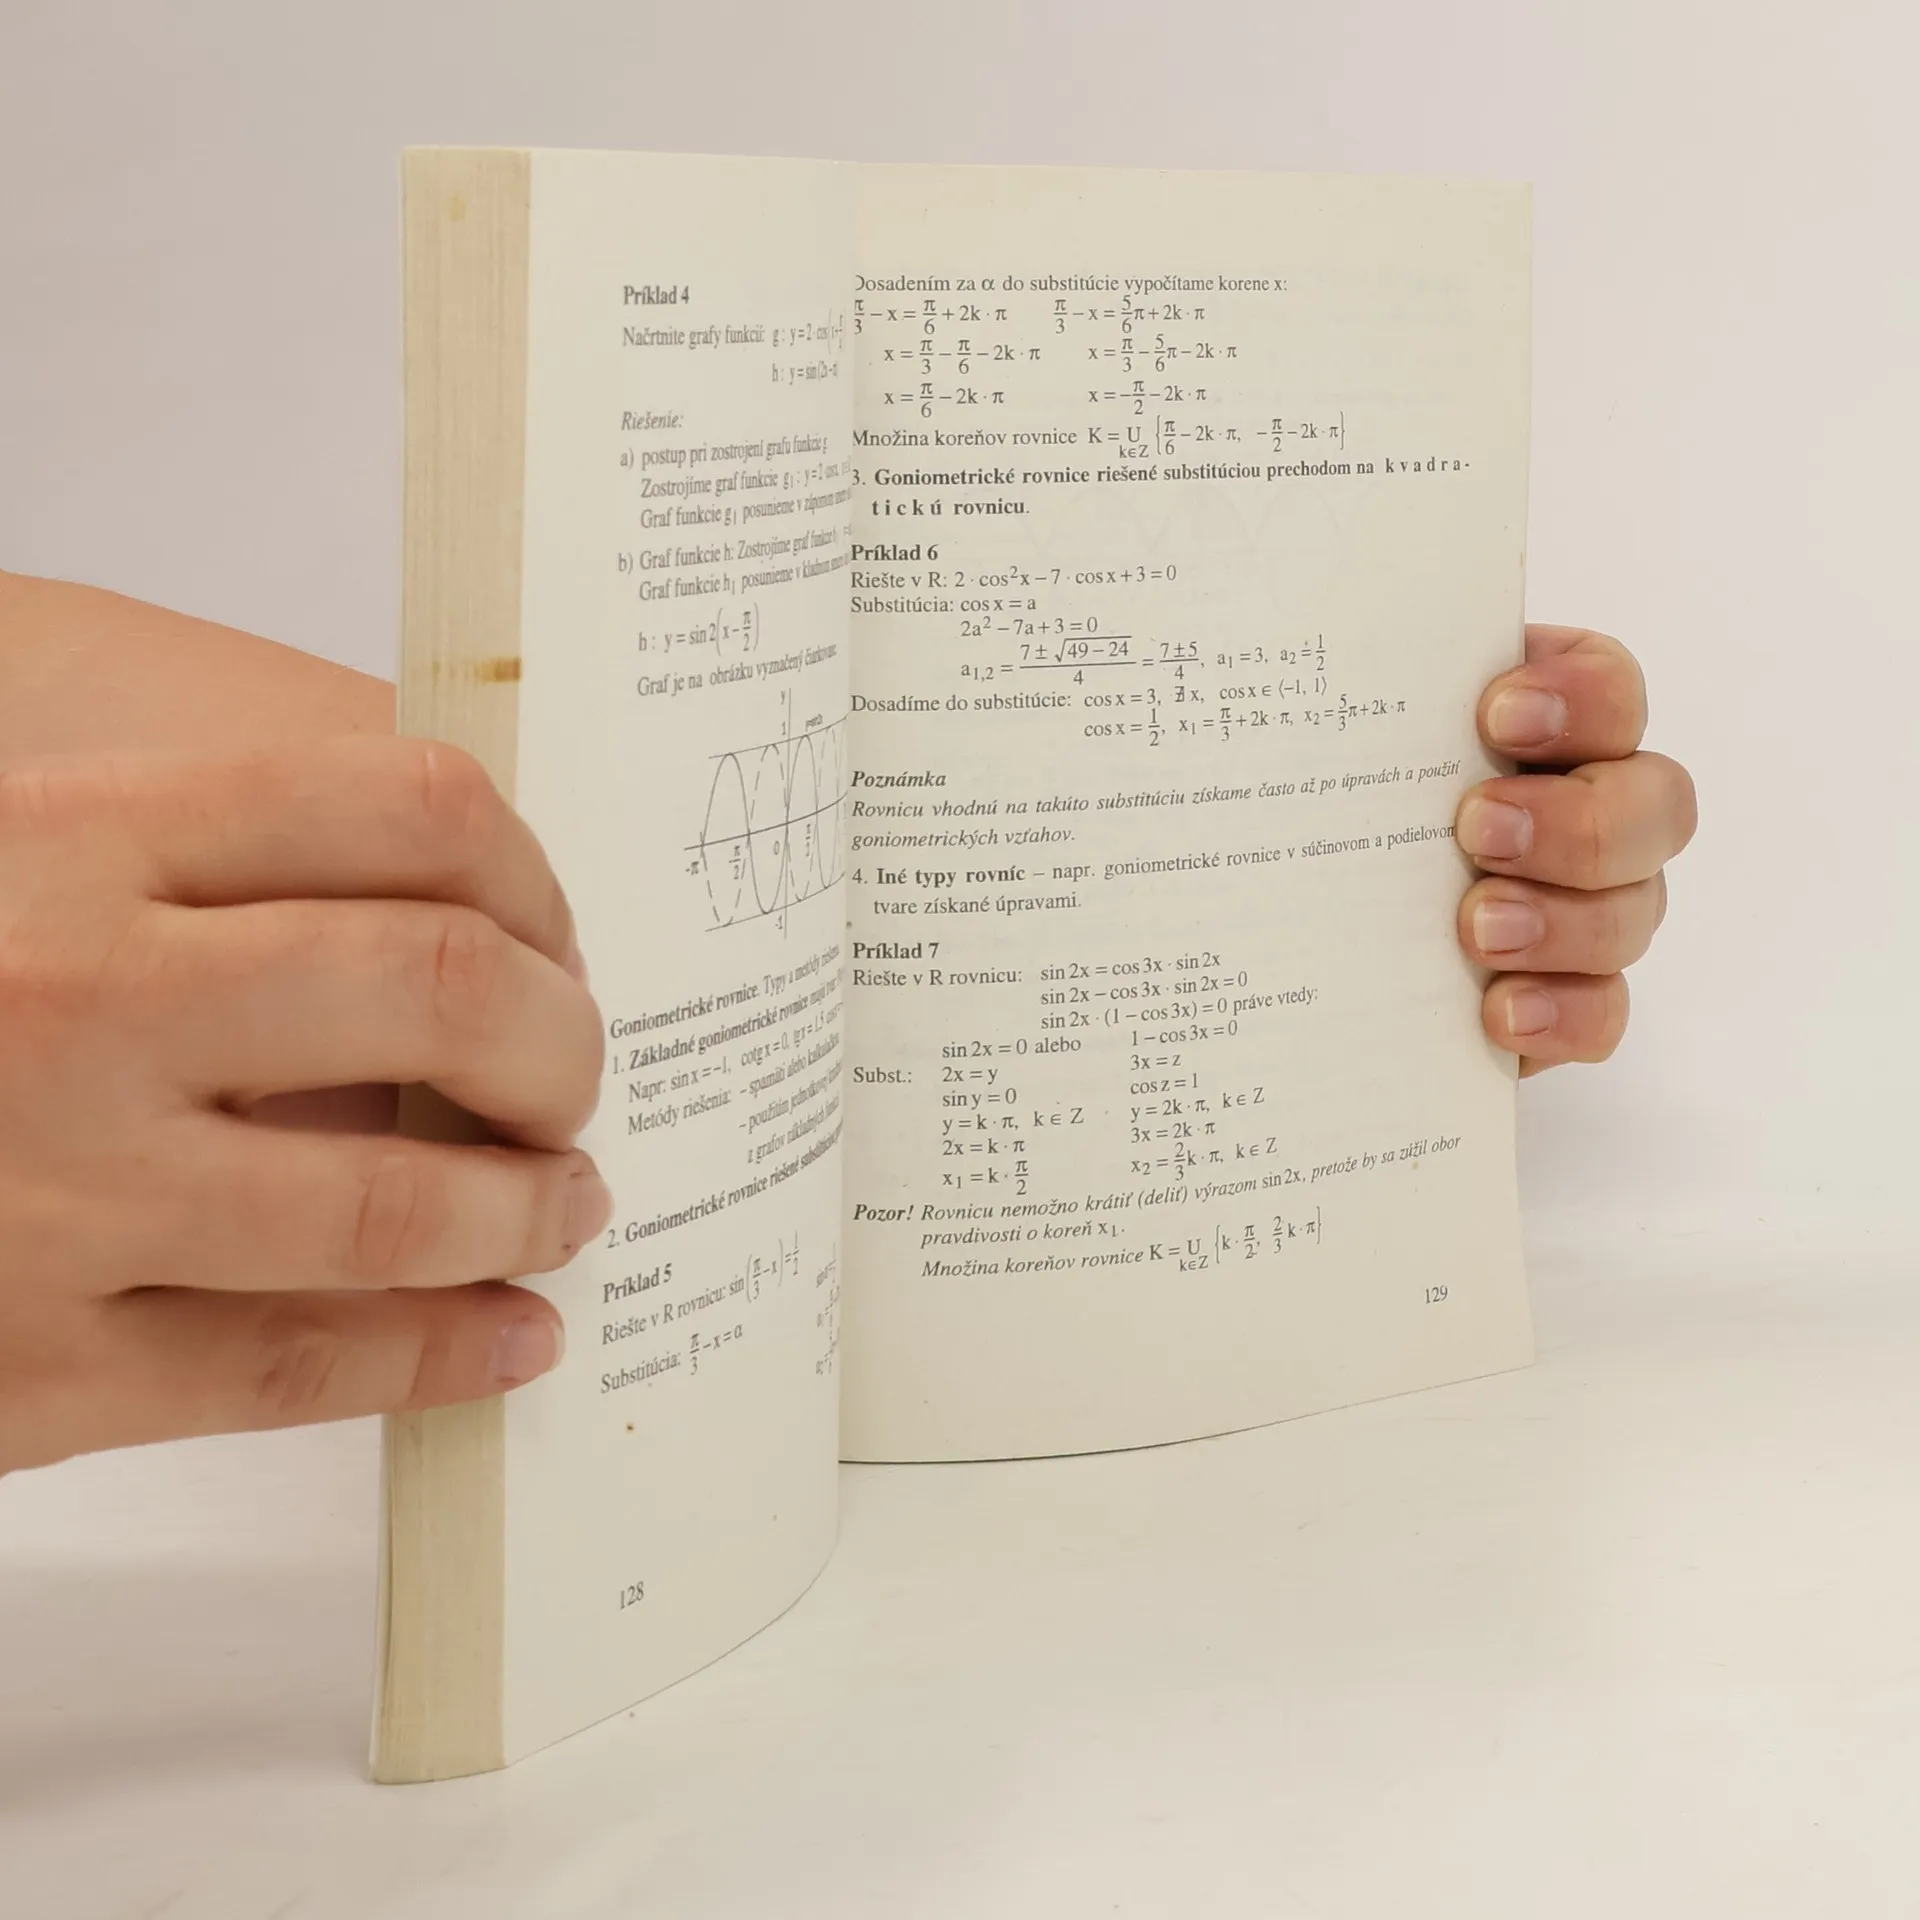 Príklad 4
Načrtnite grafy funkcií: g : y = 2 · cos
h : y = sin (2x – π
Riešenie:
a) postup pri zostrojení grafu funkcie g
Zostrojíme graf funkcie g₁ : y = 2 cos x,
Graf funkcie g₁ posunieme v zápornom
b) Graf funkcie h: Zostrojíme graf funkcie
Graf funkcie h₁ posunieme v kladnom
h : y = sin 2(x – π/2)
Graf je na obrázku vyznačený čiarkovane
y
1
-π -π/2 0 π/2
-1
Goniometrické rovnice. Typy a metódy riešenia
1. Základné goniometrické rovnice majú tvar
Napr: sin x = –1, cotg x = 0, tg x = 1,5
Metódy riešenia: – spamäti alebo kalkulačkou
– použitím jednotkovej
z grafov základných funkcií
2. Goniometrické rovnice riešené substitúciou
Príklad 5
Riešte v R rovnicu: sin(π/3 – x) = 1/2
Substitúcia: π/3 – x = α
128
Dosadením za α do substitúcie vypočítame korene x:
π/3 – x = π/6 + 2k · π π/3 – x = 5/6π + 2k · π
x = π/3 – π/6 – 2k · π x = π/3 – 5/6π – 2k · π
x = π/6 – 2k · π x = –π/2 – 2k · π
Množina koreňov rovnice K = U k∈Z {π/6 – 2k · π, –π/2 – 2k · π}
3. Goniometrické rovnice riešené substitúciou prechodom na k v a d r a -
t i c k ú rovnicu.
Príklad 6
Riešte v R: 2 · cos²x – 7 · cos x + 3 = 0
Substitúcia: cos x = a
2a² – 7a + 3 = 0
a₁,₂ = (7 ± √(49 – 24))/4 = (7 ± 5)/4, a₁ = 3, a₂ = 1/2
Dosadíme do substitúcie: cos x = 3, ∄ x, cos x ∈ ⟨–1, 1⟩
cos x = 1/2, x₁ = π/3 + 2k · π, x₂ = 5/3π + 2k · π
Poznámka
Rovnicu vhodnú na takúto substitúciu získame často až po úpravách a použití
goniometrických vzťahov.
4. Iné typy rovníc – napr. goniometrické rovnice v súčinovom a podielovom
tvare získané úpravami.
Príklad 7
Riešte v R rovnicu: sin 2x = cos 3x · sin 2x
sin 2x – cos 3x · sin 2x = 0
sin 2x · (1 – cos 3x) = 0 práve vtedy:
sin 2x = 0 alebo 1 – cos 3x = 0
Subst.: 2x = y 3x = z
sin y = 0 cos z = 1
y = k · π, k ∈ Z y = 2k · π, k ∈ Z
2x = k · π 3x = 2k · π
x₁ = k · π/2 x₂ = 2/3k · π, k ∈ Z
Pozor! Rovnicu nemožno krátiť (deliť) výrazom sin 2x, pretože by sa zúžil obor
pravdivosti o koreň x₁.
Množina koreňov rovnice K = U k∈Z {k · π/2, 2/3 k · π}
129